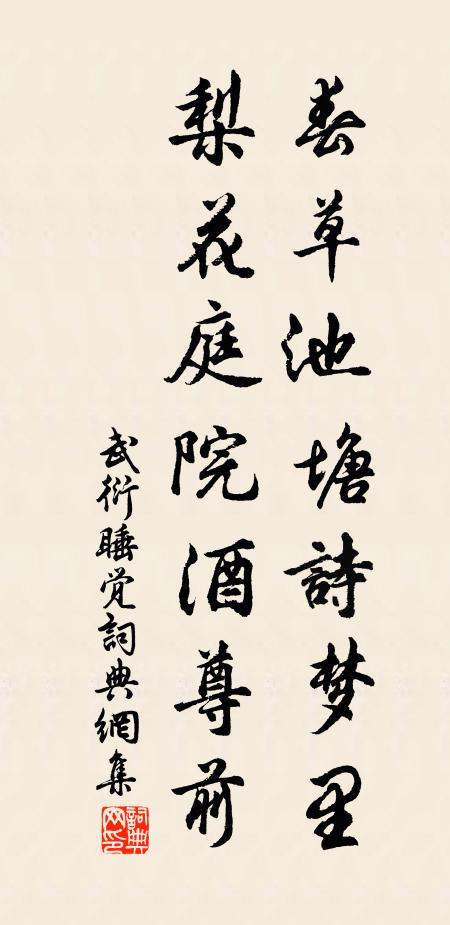 春草池塘詩梦里
梨花庭院酒尊前
武衍睡觉詞典網集
詞典網印